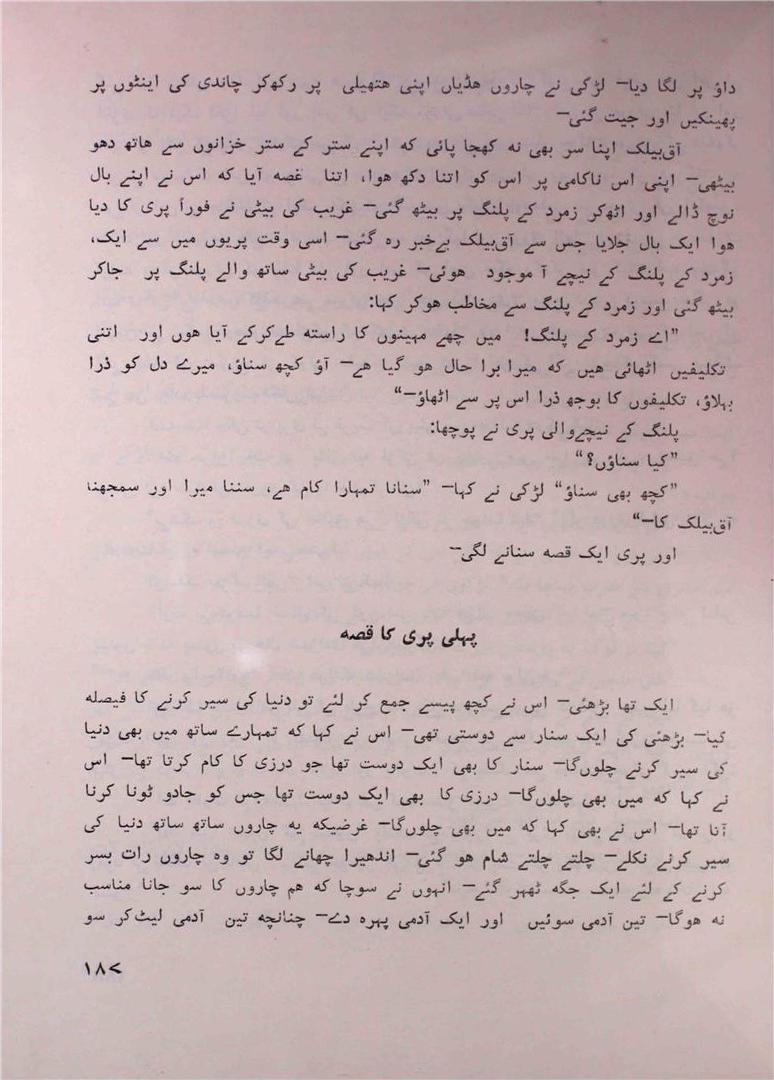 داؤ پر لگا دیا— لڑکی نے چاروں ھڈیاں اپنی ھتھیلی پر رکھکر چاندی کی اینٹوں پر
پھینکیں اور جیت گئی—
آق‌بیلک اپنا سر بھی نہ کھجا پائی کہ اپنے ستر کے ستر خزانوں سے ھاتھ دھو
بیٹھی— اپنی اس ناکامی پر اس کو اتنا دکھ ھوا، اتنا غصہ آیا کہ اس نے اپنے بال
نوچ ڈالے اور اٹھکر زمرد کے پلنگ پر بیٹھ گئی— غریب کی بیٹی نے فوراً پری کا دیا
ھوا ایک بال جلایا جس سے آق‌بیلک بےخبر رہ گئی— اسی وقت پریوں میں سے ایک،
زمرد کے پلنگ کے نیچے آ موجود ھوئی— غریب کی بیٹی ساتھ والے پلنگ پر جاکر
بیٹھ گئی اور زمرد کے پلنگ سے مخاطب ھوکر کہا:
”اے زمرد کے پلنگ! میں چھے مہینوں کا راستہ طےکرکے آیا ھوں اور اتنی
تکلیفیں اٹھائی ھیں کہ میرا برا حال ھو گیا ھے— آؤ کچھ سناؤ، میرے دل کو ذرا
بہلاؤ، تکلیفوں کا بوجھ ذرا اس پر سے اٹھاؤ—“
پلنگ کے نیچےوالی پری نے پوچھا:
”کیا سناؤں؟“
”کچھ بھی سناؤ“ لڑکی نے کہا— ”سنانا تمہارا کام ھے، سننا میرا اور سمجھنا،
آق‌بیلک کا—“
اور پری ایک قصہ سنانے لگی—
پہلی پری کا قصہ
ایک تھا بڑھئی— اس نے کچھ پیسے جمع کر لئے تو دنیا کی سیر کرنے کا فیصلہ
کیا— بڑھئی کی ایک سنار سے دوستی تھی— اس نے کہا کہ تمہارے ساتھ میں بھی دنیا
کی سیر کرنے چلوں‌گا— سنار کا بھی ایک دوست تھا جو درزی کا کام کرتا تھا— اس
نے کہا کہ میں بھی چلوں‌گا— درزی کا بھی ایک دوست تھا جس کو جادو ٹونا کرنا
آتا تھا— اس نے بھی کہا کہ میں بھی چلوں‌گا— غرضیکہ یہ چاروں ساتھ ساتھ دنیا کی
سیر کرنے نکلے— چلتے چلتے شام ھو گئی— اندھیرا چھانے لگا تو وہ چاروں رات بسر
کرنے کے لئے ایک جگہ ٹھہر گئے— انہوں نے سوچا کہ ھم چاروں کا سو جانا مناسب
نہ ھوگا— تین آدمی سوئیں اور ایک آدمی پہرہ دے— چنانچہ تین آدمی لیٹ‌کر سو
۱۸۷